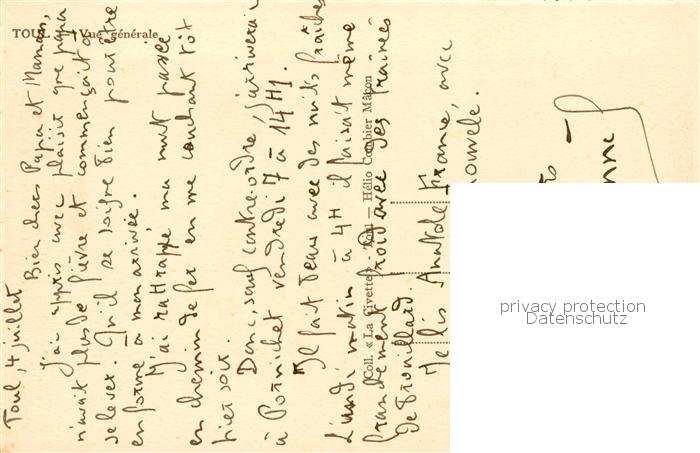 TOUL — Vue générale
Coll. « La Civette » - Toul — Hélio Combier Mâcon
Toul, 4 juillet
Bien chers Papa et Maman,
J'ai appris avec plaisir que papa
n'avait plus de fièvre et commençait à
se lever. Qu'il se soigne bien pour être
en forme à mon arrivée.
J'ai rattrapé ma nuit passée
en chemin de fer en me couchant tôt
hier soir.
Donc, sauf contre-ordre, j'arriverai
à Pornichet vendredi 7 à 14H1.
Il fait beau avec des nuits fraîches
Lundi matin à 4H il faisait même
franchement froid avec des traînées
de brouillard.
Je lis Anatole France, avec
privacy protection
Datenschutz